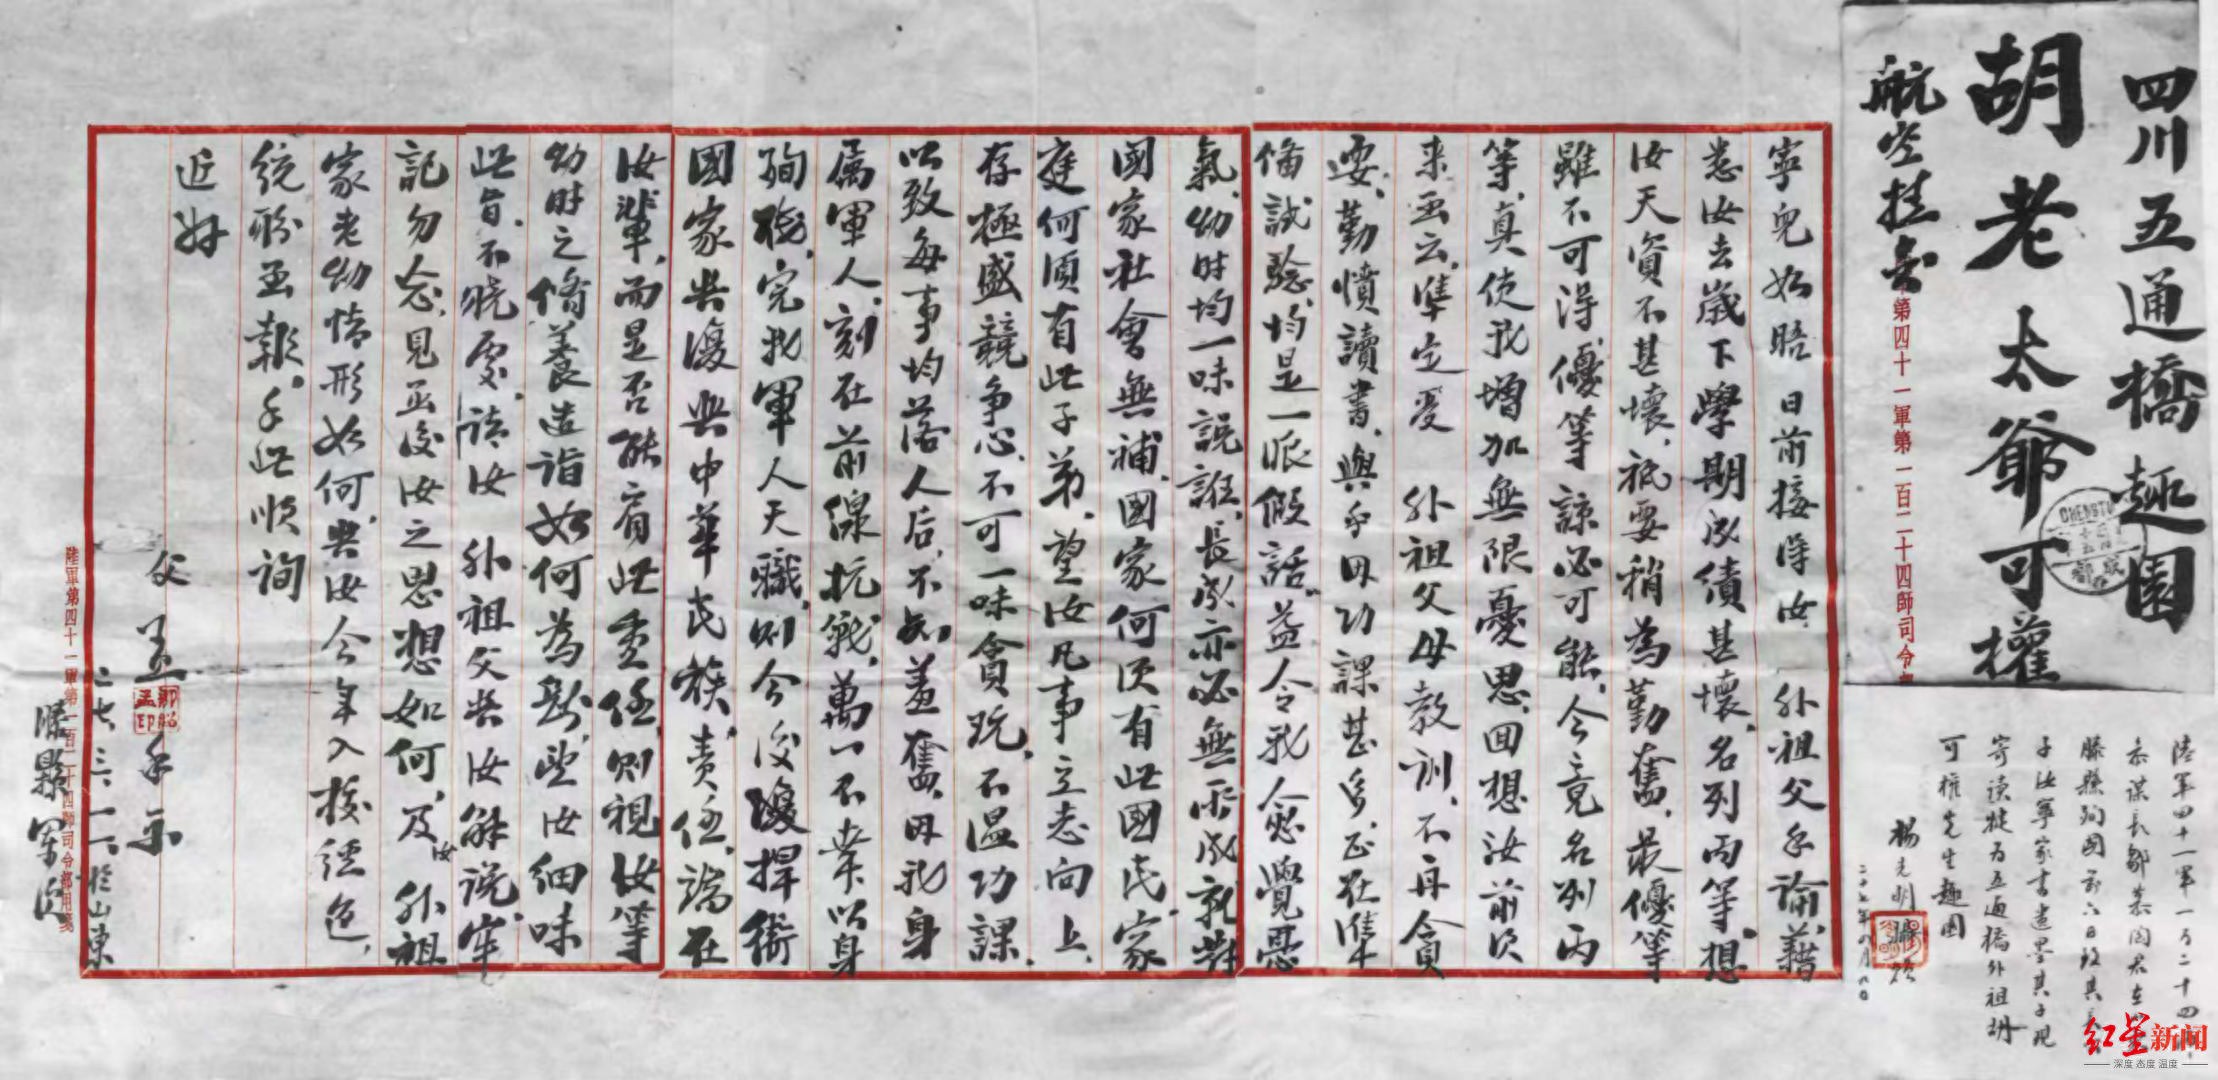 四川五通橋趣園
胡老太爺可權
航空挂号
第四十一軍第一百二十四師司令部
CHENGTU
成都
寧兒如晤 日前接得汝 外祖父手諭，藉
悉汝去歲下學期成績甚壞，名列丙等，想
汝天資不甚壞，祇要稍為勤奮，最優等
雖不可得，優等諒必可能，今竟名列丙
等，真使我增加無限憂思，回想汝前次
来函云，準定受 外祖父母教訓，不再貪
耍，勤憤讀書，與乎因功課甚多，正在準
備試驗，均是一派假話，益令我人愈覺憂
氣，幼時均一味説誑，長成亦必無所成就，對
國家社會無補，國家何須有此國民，家
庭何須有此子弟，望汝凡事立志向上，
存極盛競争心，不可一味貪玩，不温功課，
以致每事均落人后，不知羞奮，因我身
属軍人，刻在前線抗戰，萬一不幸以身
殉職，完我軍人天職，则今後復捍衛
國家与復興中華民族，責任，端在
汝輩，而是否能肩此重任，则視汝等
幼時之脩養造詣如何為斷，望汝細味
此旨，不曉處，請汝 外祖父与汝解说，牢
記勿忘，見函後汝之思想如何，及汝外祖
家老幼情形如何，与汝今年入校經過，
統盼函報，手此順詢
近好
父 孟 手示
鄒紹孟印
二七、三、一一、於山東
滕縣軍次
陸軍第四十一軍第一百二十四師司令部用箋
陸軍四十一軍一百二十四師
参謀長鄒慕陶君在
滕縣殉國前六日致其
子汝寧家書遺墨其子現
寄讀犍为五通橋外祖胡
可權先生趣園
楊克明
二十七年八月八日
红星新闻
深度 态度 温度